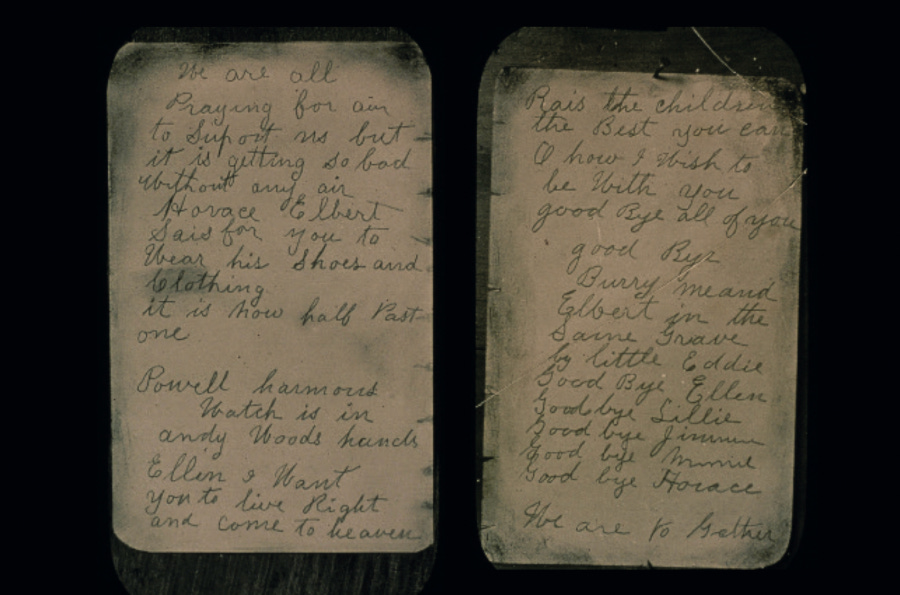 We are all
Praying for air
to Suport us but
it is getting so bad
Without any air
Horace Elbert
Said for you to
Wear his Shoes and
Clothing
it is now half Past
one
Powell harmons
Watch is in
andy Woods hands
Ellen I Want
you to live Right
and come to heaven
Rais the children
the Best you can
O how I Wish to
be With you
good Bye all of you
good Bye
Burry me and
Elbert in the
Same Grave
by little Eddie
Good Bye Ellen
Good bye Lillie
Good bye Jimmie
Good bye Minnie
Good bye Horace
We are to Gether